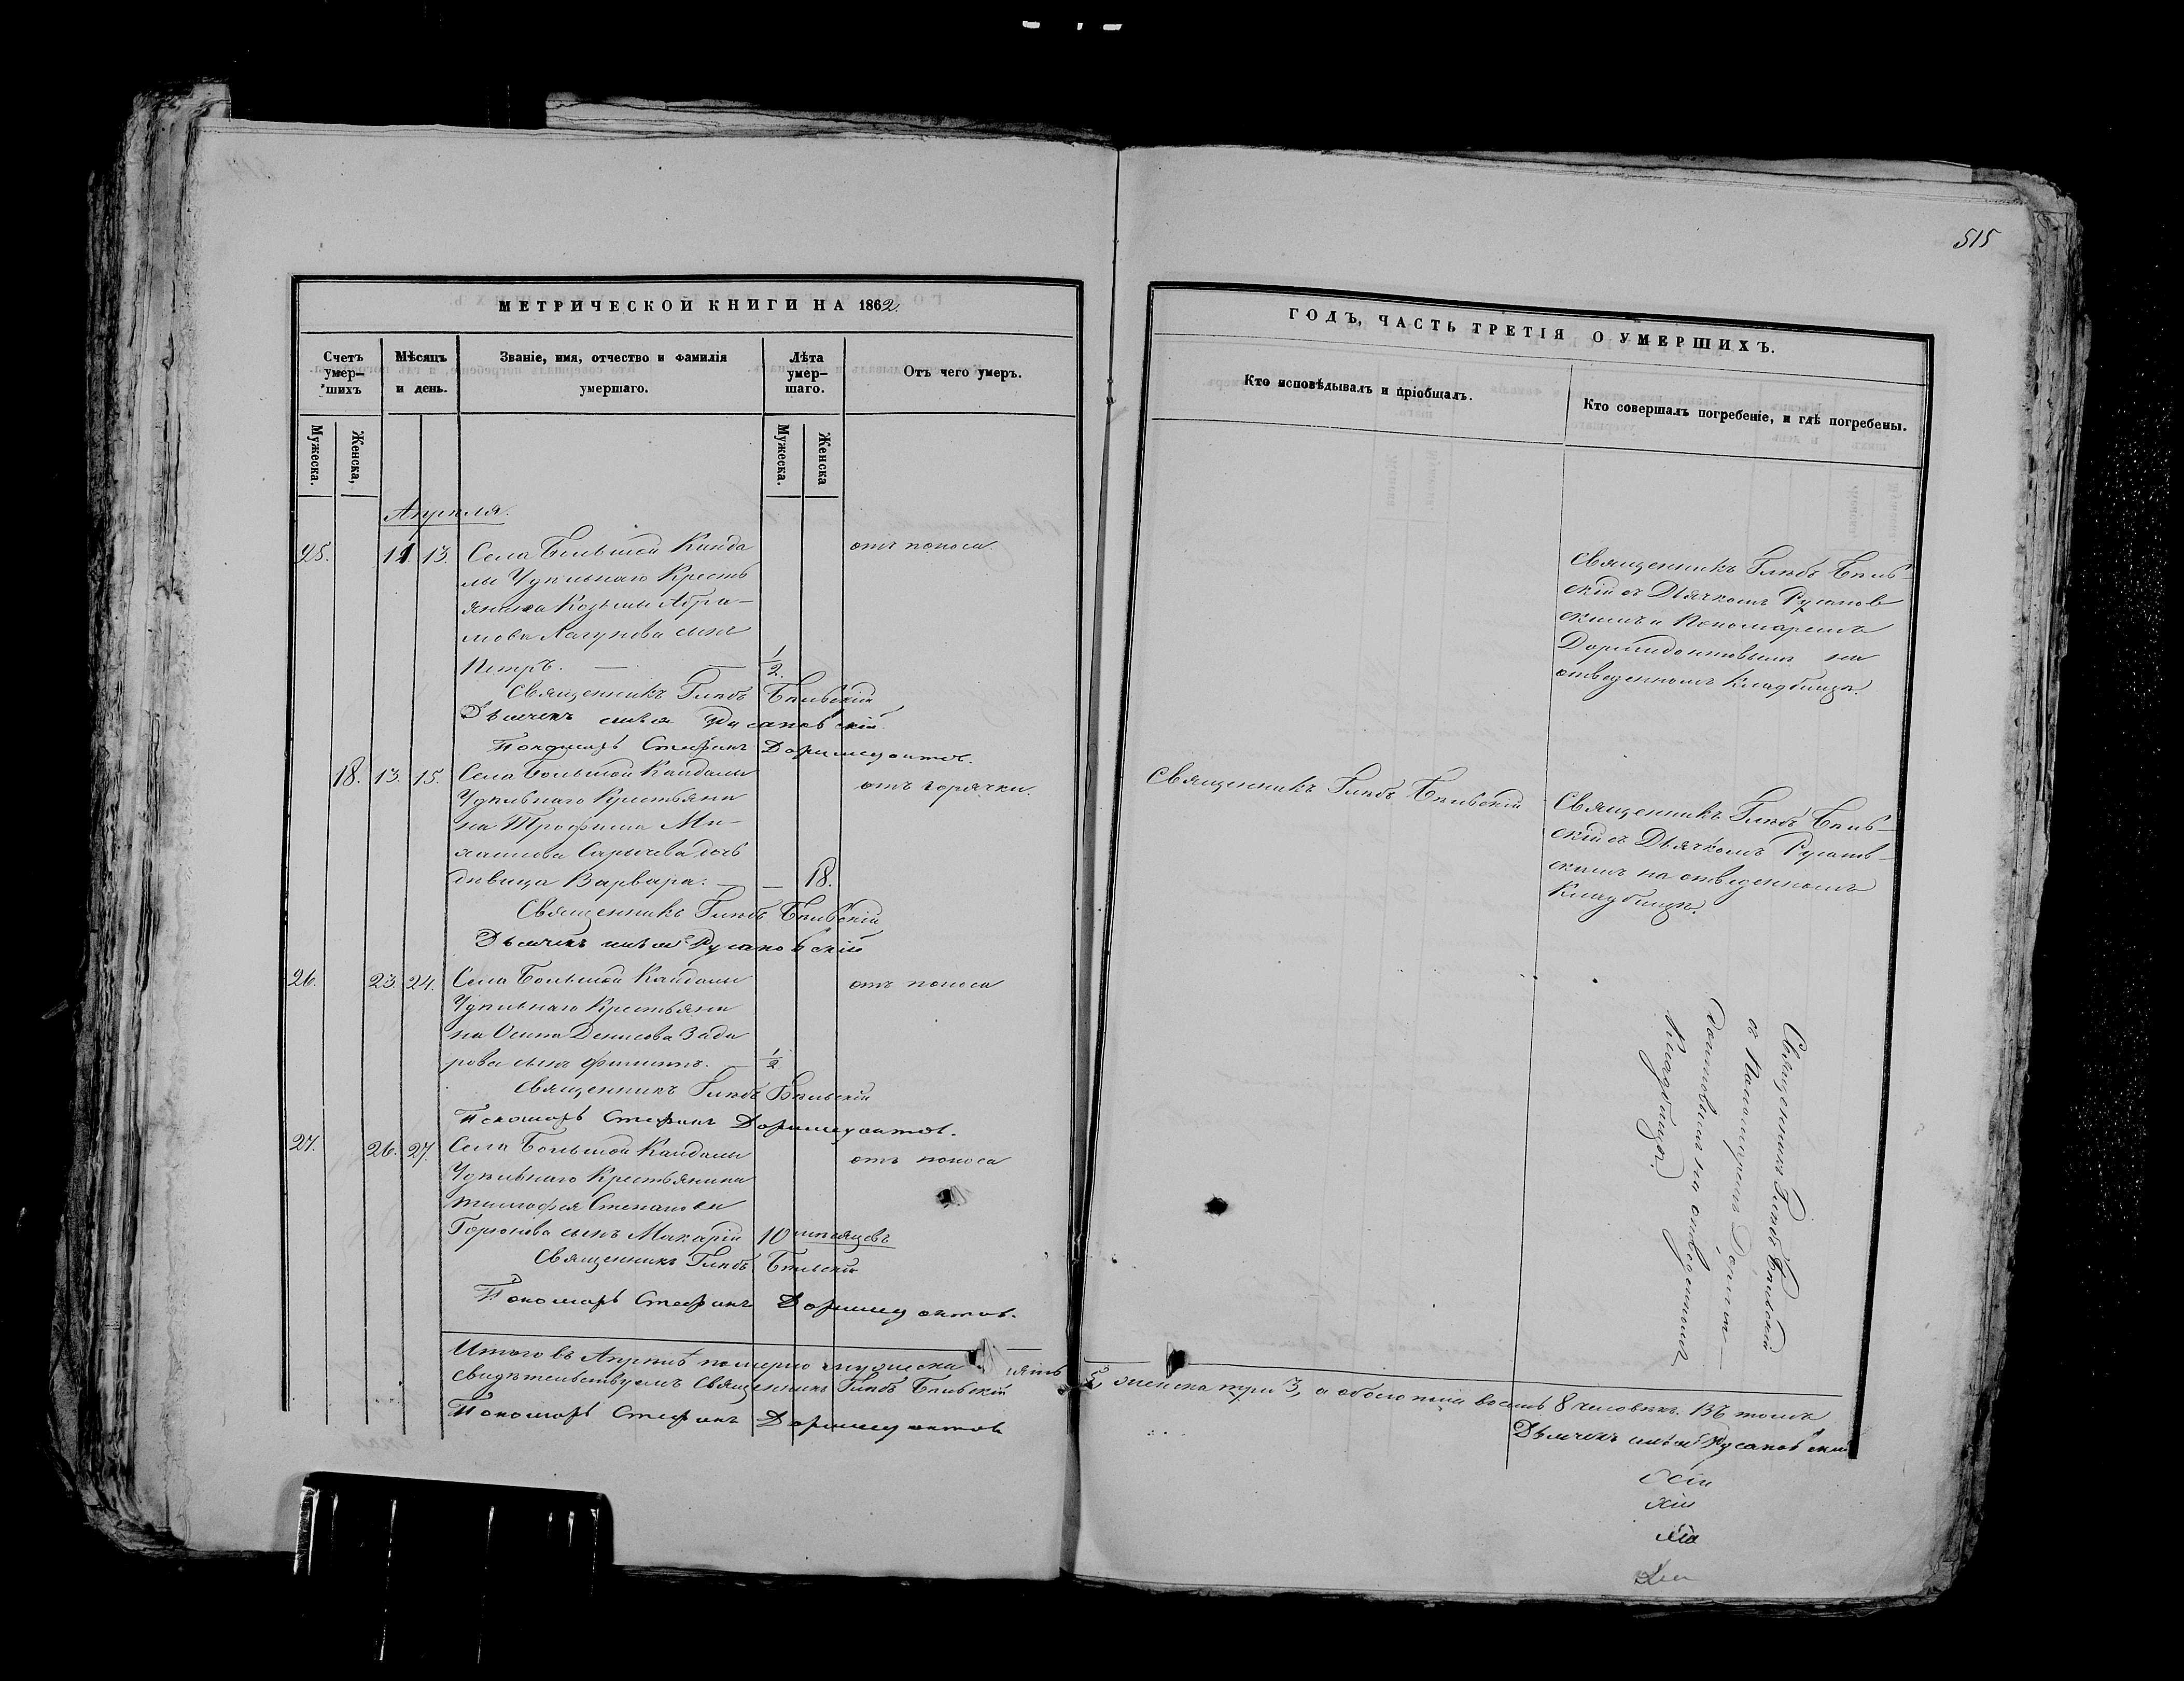 515
МЕТРИЧЕСКОЙ КНИГИ НА 1862
ГОДЪ, ЧАСТЬ ТРЕТІЯ О УМЕРШИХЪ.
Счетъ умер-шихъ
Мѣсяцъ и день.
Званіе, имя, отчество и фамилія умершаго.
Лѣта умер-шаго.
Отъ чего умеръ.
Кто исповѣдывалъ и пріобщалъ.
Кто совершалъ погребеніе, и гдѣ погребены.
Мужеска.
Женска,
Мужеска.
Женска
Апрѣля.
25. 11. 13. Села Большой Канда
лы Удѣльнаго Кресть
янина Козьмы Абра-
мова Лагунова сынъ
Петръ. — 1/2.
отъ поноса.
Священникъ Глѣбъ Бѣльскій
Дьячекъ Русановскій
Пономарь Стефанъ Доримедонтовъ.
Священникъ Глѣбъ Бѣль-
скій съ Дьячкомъ Русанов
скимъ и Пономаремъ
Доримедонтовымъ на
отведенномъ Кладбищѣ.
18. 13. 15. Села Большой Кандалы
Удѣльнаго Крестьяни
на Трофима Ми-
хаилова Сарычева дочь
дѣвица Варвара. — — 18.
отъ горячки.
Священникъ Глѣбъ Бѣльскій
Дьячекъ Русановскій
Священникъ Глѣбъ Бѣльскій
Священникъ Глѣбъ Бѣль-
скій съ Дьячкомъ Русанов-
скимъ на отведенномъ
Кладбищѣ.
26. 23. 24. Села Большой Кандалы
Удѣльнаго Крестьяни
на Осипа Денисова Зади
рова сынъ Филиппъ. 1/2
отъ поноса
Священникъ Глѣбъ Бѣльскій
Пономарь Стефанъ Доримедонтовъ.
27. 26. 27. Села Большой Кандалы
Удѣльнаго Крестьянина
Тимофея Степанова
Горюнова сынъ Макарій 10 мѣсяцовъ
отъ поноса
Священникъ Глѣбъ Бѣльскій
Пономарь Стефанъ Доримедонтов.
Священникъ Глѣбъ Бѣльскій
съ Пономаремъ Дориме-
донтовымъ на отведенномъ
Кладбищѣ.
Итого въ Апрѣлѣ померло мужеска пять 5, женска три 3, а обоего пола восемь 8 человѣкъ. Въ томъ
свидѣтельствуемъ Священникъ Глѣбъ Бѣльскій
Дьячекъ Русановскій
Пономарь Стефанъ Доримедонтов